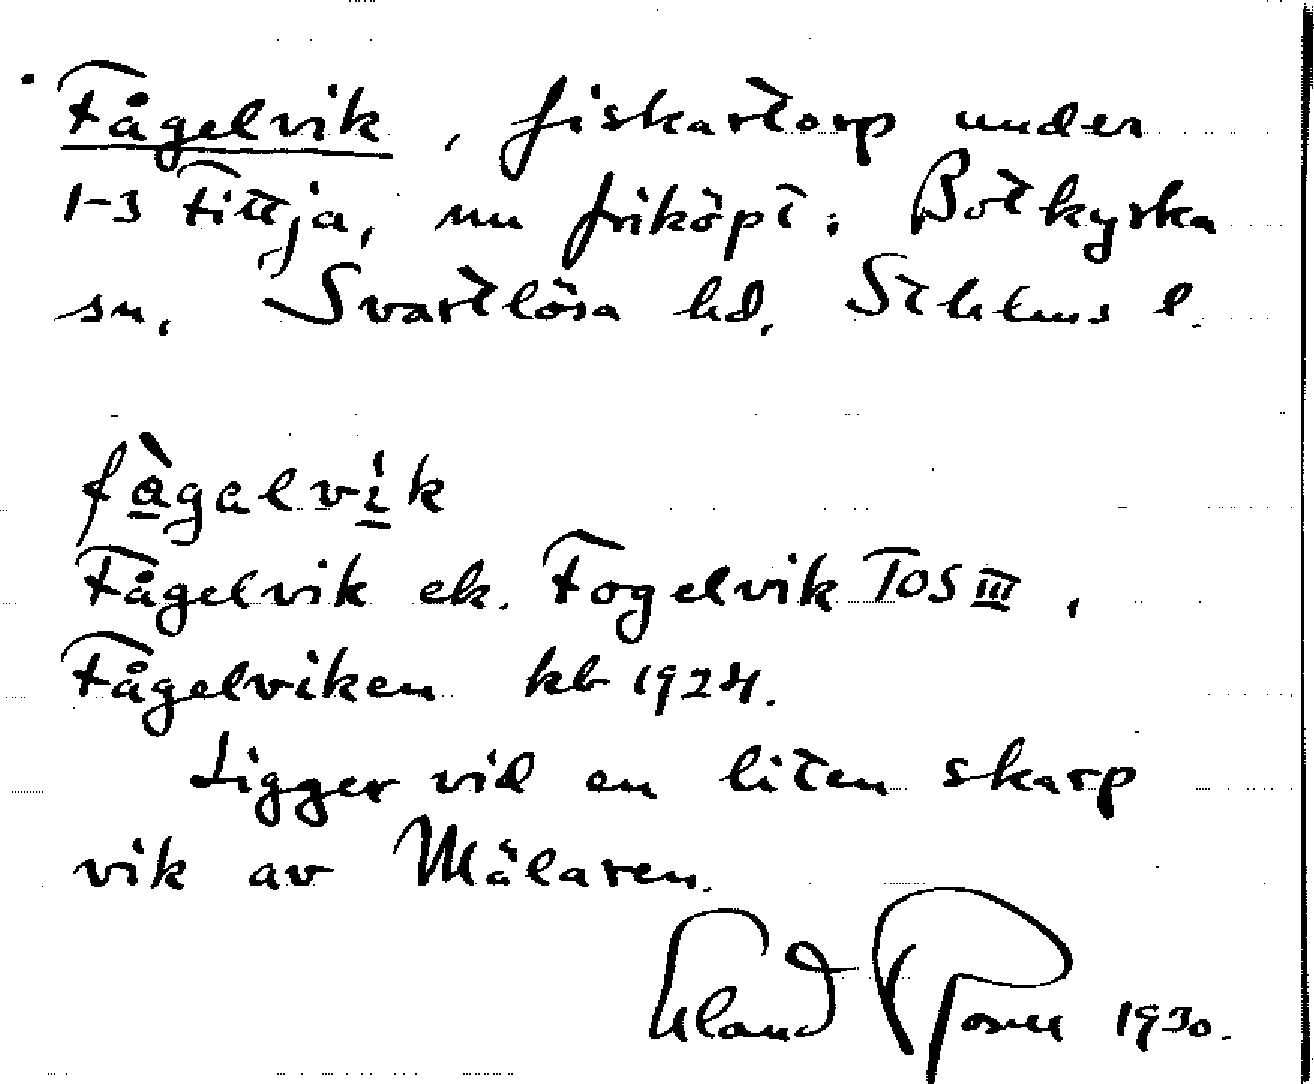 Fågelvik, fiskartorp under
1-3 Fittja, nu friköpt; Botkyrka
sn, Svartlösa hd, Sthlms l.
fàgalvik
Fågelvik ek. Fogelvik TOS III,
Fågelviken kb 1924.
Ligger vid en liten skarp
vik av Mälaren.
Erland Rosell 1930.